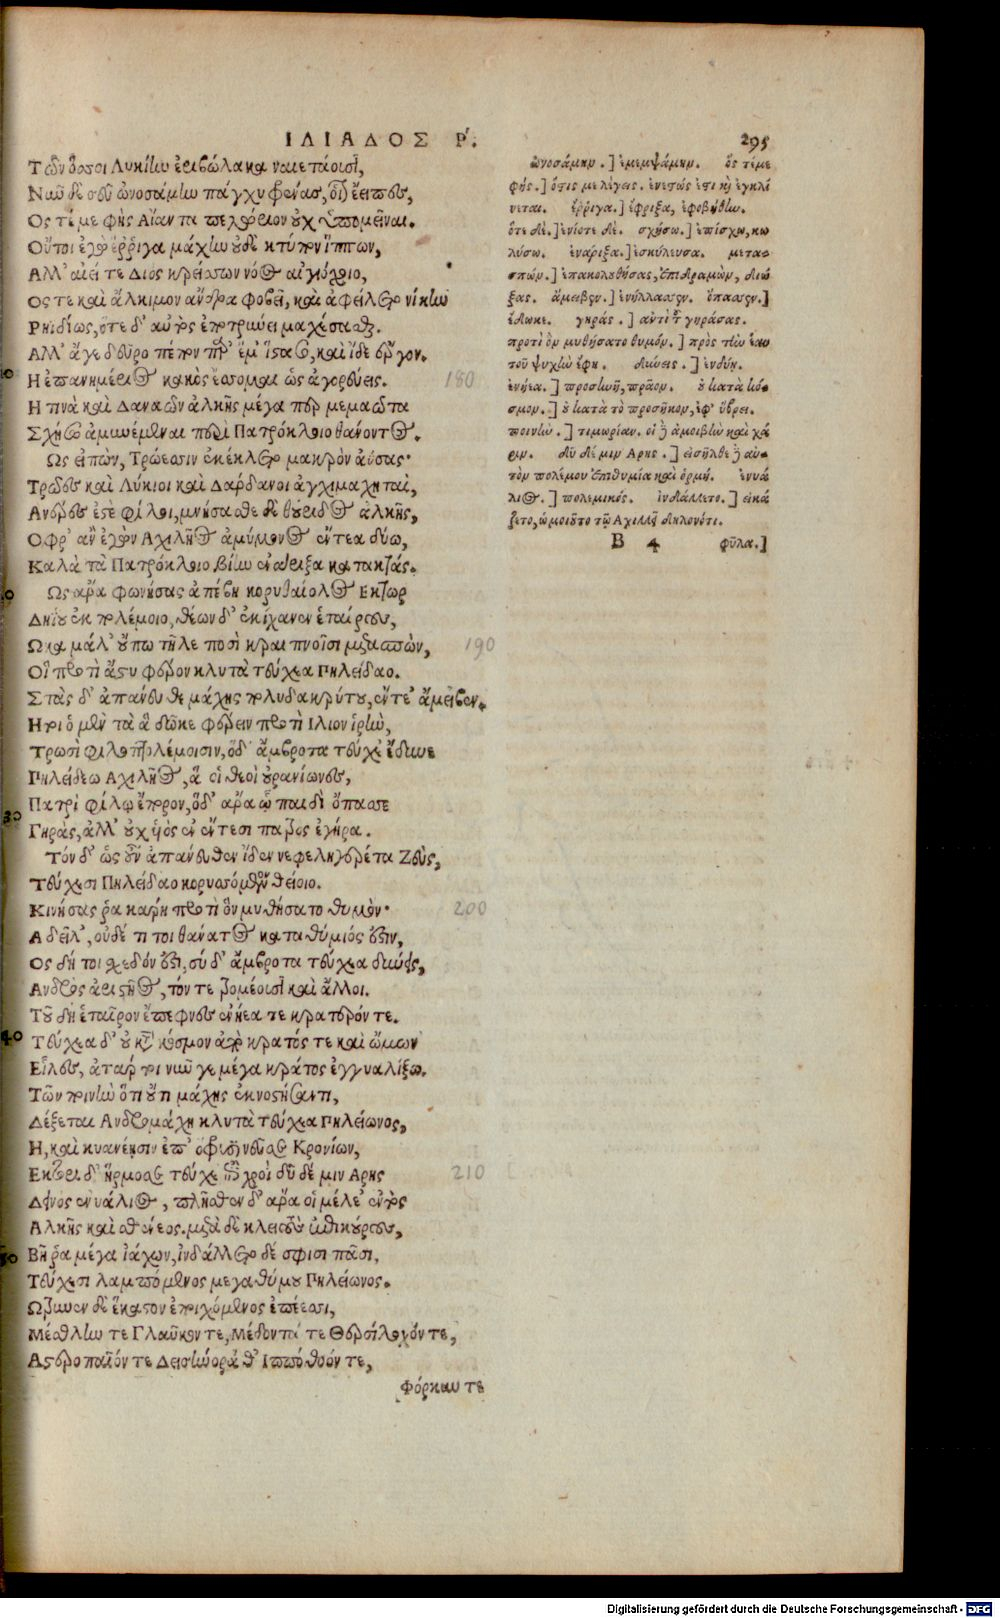 ΙΛΙΑΔΟΣ Ρ.
295
Τῶν ὅσσοι Λυκίην ἐριβώλακα ναιετάουσι,
Νῦν δέ σευ ὠνοσάμην πάγχυ φρένας, οἷον ἔειπες,
Ος τέ με φῂς Αἴαντα πελώριον οὐχ ὑπομεῖναι.
Οὔτοι ἐγὼν ἔῤῥιγα μάχην οὐδὲ κτύπον ἵππων,
Αλλ' αἰεί τε Διὸς κρείσσων νόος αἰγιόχοιο,
Ος τε καὶ ἄλκιμον ἄνδρα φοβεῖ, καὶ ἀφείλετο νίκην
Ρηϊδίως, ὅτε δ' αὐτὸς ἐποτρύνει μαχέσασθαι.
Αλλ' ἄγε δεῦρο πέπον παρ' ἔμ' ἵστασο, καὶ ἴδε ἔργον.
Η ἐπανημέριος κακὸς ἔσσομαι ὡς ἀγορεύεις.
180
Η τινὰ καὶ Δαναῶν ἀλκῆς μέγα περ μεμαῶτα
Σχήσω ἀμυνέμεναι περὶ Πατρόκλοιο θανόντος.
Ως εἰπὼν, Τρώεσσιν ἐκέκλετο μακρὸν ἀύσας·
Τρῶες καὶ Λύκιοι καὶ Δάρδανοι ἀγχιμαχηταὶ,
Ανέρες ἐστὲ φίλοι, μνήσασθε δὲ θούριδος ἀλκῆς,
Οφρ' ἂν ἐγὼν Αχιλῆος ἀμύμονος ἔντεα δύω,
Καλὰ τὰ Πατρόκλοιο βίην ἐνάριξα κατακτάς.
Ως ἄρα φωνήσας ἀπέβη κορυθαίολος Εκτωρ
Δηΐου ἐκ πολέμοιο, θέων δ' ἐκίχανεν ἑταίρους,
Ωκα μάλ' οὔπω τῆλε ποσὶ κραιπνοῖσι μετασπὼν,
190
Οἳ προτὶ ἄστυ φέρον κλυτὰ τεύχεα Πηλείδαο.
Στὰς δ' ἀπάνευθε μάχης πολυδακρύτου, ἔντε' ἄμειβεν.
Ητοι ὁ μὲν τὰ ἃ δῶκε φέρειν προτὶ Ιλιον ἱρὴν,
Τρωσὶ φιλοπτολέμοισιν, ὁ δ' ἄμβροτα τεύχε' ἔδυνε
Πηλείδεω Αχιλῆος, ἅ οἱ θεοὶ οὐρανίωνες,
Πατρὶ φίλῳ ἔπορον, ὁ δ' ἄρα ᾧ παιδὶ ὄπασσε
Γηρὰς, ἀλλ' οὐχ υἱὸς ἐν ἔντεσι πατρὸς ἐγήρα.
Τὸν δ' ὡς οὖν ἀπάνευθεν ἴδεν νεφεληγερέτα Ζεὺς,
Τεύχεσι Πηλείδαο κορυσσόμενον θείοιο.
Κινήσας ῥα κάρη προτὶ ὃν μυθήσατο θυμόν·
200
Α δεῖλ', οὐδέ τί τοι θάνατος καταθύμιός ἐστιν,
Ος δή τοι σχεδόν ἐστι, σύ δ' ἄμβροτα τεύχεα δύνεις,
Ανδρὸς ἀριστῆος, τόν τε τρομέουσι καὶ ἄλλοι.
Τοῦ δὴ ἑταῖρον ἔπεφνες ἐνηέα τε κρατερόν τε.
Τεύχεα δ' οὐ κατὰ κόσμον ἀπὸ κρατός τε καὶ ὤμων
Εἵλευ, ἀτάρ τοι νῦν γε μέγα κράτος ἐγγυαλίξω.
Τῶν ποινὴν ὅ τι οὔτι μάχης ἐκνοστήσαντι,
Δέξεται Ανδρομάχη κλυτὰ τεύχεα Πηλείωνος,
Η, καὶ κυανέησιν ἐπ' ὀφρύσι νεῦσε Κρονίων,
Εκτορι δ' ἥρμοσε τεύχε' ἐπὶ χροῒ δῦ δέ μιν Αρης
210
Δεινὸς ἐνυάλιος, πλῆσθεν δ' ἄρα οἱ μέλε' ἐντὸς
Αλκῆς καὶ σθένεος. μετὰ δὲ κλειτοὺς ἐπικούρους,
Βῆ ῥα μέγα ἰάχων, ἰνδάλλετο δέ σφισι πᾶσι,
Τεύχεσι λαμπόμενος μεγαθύμου Πηλείωνος.
Ωτρυνεν δὲ ἕκαστον ἐποιχόμενος ἐπέεσσι,
Μέσθλην τε Γλαῦκόν τε, Μέδοντά τε Θερσίλοχόν τε,
Αστεροπαῖόν τε Δεισήνορά θ' Ιππόθοόν τε,
Φόρκυν τε
ὠνοσάμην.] ἐμεμψάμην. ὅς τέ με
φῄς.] ὅστις με λέγεις. ἐνεστώς ἐστι καὶ ἐγκλί
νεται. ἔῤῥιγα.] ἔφριξα, ἐφοβήθην.
ὅτε δέ.] ἐνίοτε δέ. σχήσω.] ἐπίσχω, κω
λύσω. ἐνάριξα.] ἐσκύλευσα. μετα-
σπών.] ἐπακολουθήσας, ἐπιδραμὼν, διώ
ξας. ἄμειβεν.] ἐνήλλασσεν. ὄπασσεν.]
ἔδωκε. γηράς.] ἀντὶ τοῦ γηράσας.
προτὶ ὃν μυθήσατο θυμόν.] πρὸς τὴν ἑαυ
τοῦ ψυχὴν ἔφη. δύνεις.] ἐνδύῃ.
ἐνηέα.] προσηνῆ, πρᾶον. οὐ κατὰ κό-
σμον.] οὐ κατὰ τὸ προσῆκον, ἐφ' ὕβρει.
ποινὴν.] τιμωρίαν. οἱ δὲ ἀμοιβὴν καὶ χά
ριν. δῦ δέ μιν Αρης.] εἰσῆλθε δὲ αὐ-
τὸν πολέμου ἐπιθυμία καὶ ὁρμή. ἐνυά
λιος.] πολεμικός. ἰνδάλλετο.] εἰκά
ζετο, ὡμοιοῦτο τῷ Αχιλλεῖ δηλονότι.
Β 4 φῦλα.]
Digitalisierung gefördert durch die Deutsche Forschungsgemeinschaft - DFG